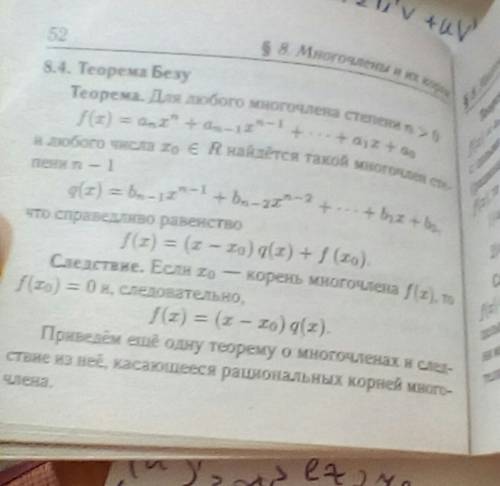 2u'v + uv'
52
§ 8. Многочлены и их корни
8.4. Теорема Безу
Теорема. Для любого многочлена степени n > 0
f(x) = aₙxⁿ + aₙ₋₁xⁿ⁻¹ + ··· + a₁x + a₀
и любого числа x₀ ∈ R найдётся такой многочлен сте-
пени n − 1
q(x) = bₙ₋₁xⁿ⁻¹ + bₙ₋₂xⁿ⁻² + ··· + b₁x + b₀,
что справедливо равенство
f(x) = (x − x₀) q(x) + f (x₀).
Следствие. Если x₀ — корень многочлена f(x), то
f(x₀) = 0 и, следовательно,
f(x) = (x − x₀) q(x).
Приведём ещё одну теорему о многочленах и след-
ствие из неё, касающееся рациональных корней много-
члена.